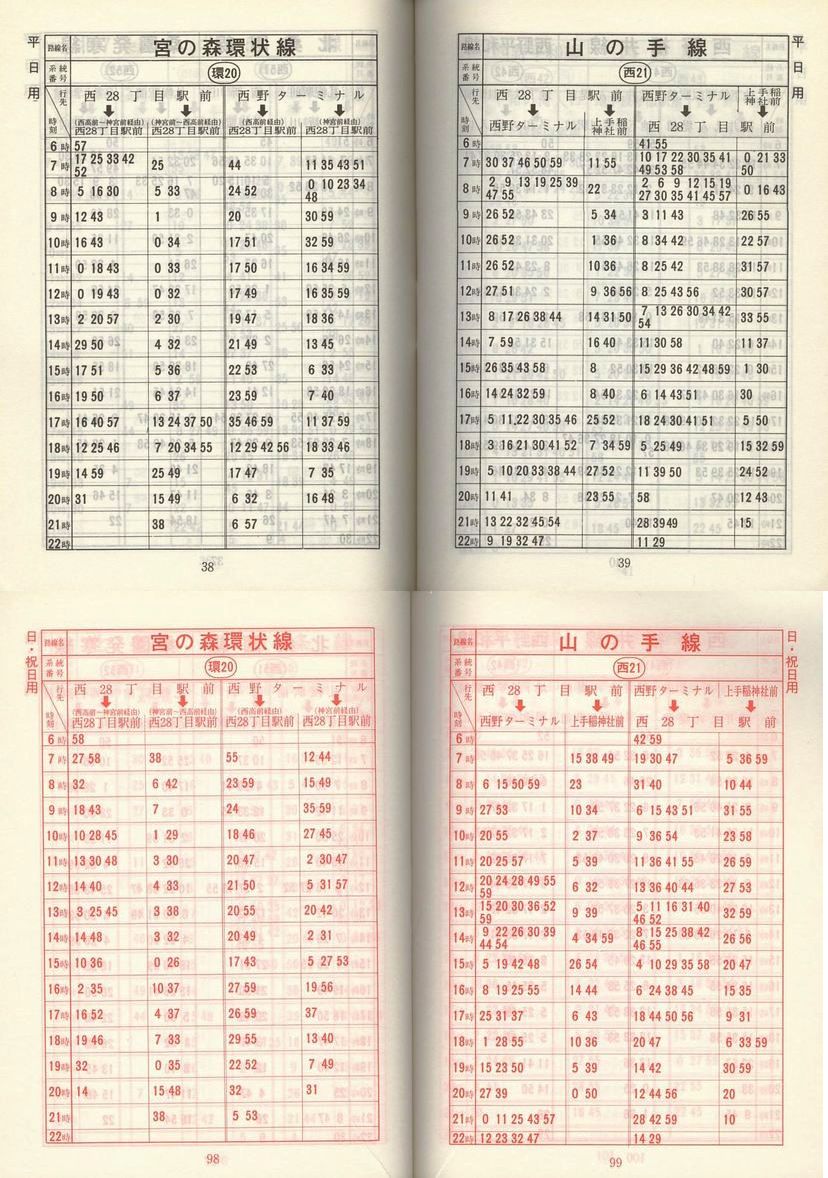 平日用
路線名 宮の森環状線
系統番号 環20
行先 西28丁目駅前 西野ターミナル
時刻 (西高前〜神宮前経由)西28丁目駅前 (神宮前〜西高前経由)西28丁目駅前 (西高前経由)西28丁目駅前 (神宮前経由)西28丁目駅前
6時 57
7時 17 25 33 42 52 25 44 11 35 43 51
8時 5 16 30 5 33 24 52 0 10 23 34 48
9時 12 43 1 20 30 59
10時 16 43 0 34 17 51 32 59
11時 0 18 43 0 33 17 50 16 34 59
12時 0 19 43 0 32 17 49 16 35 59
13時 2 20 57 2 30 19 47 18 36
14時 29 50 4 32 21 49 13 45
15時 17 51 5 36 22 53 6 33
16時 19 50 6 37 23 59 7 40
17時 16 40 57 13 24 37 50 35 46 59 11 37 59
18時 12 25 46 7 20 34 55 12 29 42 56 18 33 46
19時 14 59 25 49 17 47 7 35
20時 31 15 49 6 32 16 48
21時 38 6 57
22時
38
平日用
路線名 山の手線
系統番号 西21
行先 西28丁目駅前 上手稲神社前 西野ターミナル 上手稲神社前
時刻 西野ターミナル 西28丁目駅前
6時 41 55
7時 30 37 46 50 59 11 55 10 17 22 30 35 41 49 53 58 0 21 33 50
8時 2 9 13 19 25 39 47 55 22 2 6 9 12 15 19 27 30 35 41 45 57 0 16 43
9時 26 52 5 34 3 11 43 26 55
10時 26 52 1 36 8 34 42 22 57
11時 26 52 10 36 8 25 42 31 57
12時 27 51 9 36 56 8 25 43 56 30 57
13時 8 17 26 38 44 14 31 50 7 13 26 30 34 42 54 33 55
14時 7 59 16 40 11 30 58 11 37
15時 26 35 43 58 8 15 29 36 42 48 59 1 30
16時 14 24 32 59 8 40 6 14 43 51 30
17時 5 11 22 30 35 46 25 52 18 24 30 41 51 5 50
18時 3 16 21 30 41 52 7 34 59 5 25 49 15 32 59
19時 5 10 20 33 38 44 27 52 11 39 50 24 52
20時 11 41 23 55 58 12 43
21時 13 22 32 45 54 28 39 49 15
22時 9 19 32 47 11 29
39
日・祝日用
路線名 宮の森環状線
系統番号 環20
行先 西28丁目駅前 西野ターミナル
時刻 (西高前〜神宮前経由)西28丁目駅前 (神宮前〜西高前経由)西28丁目駅前 (西高前経由)西28丁目駅前 (神宮前経由)西28丁目駅前
6時 58
7時 27 58 38 55 12 44
8時 32 6 42 23 59 15 49
9時 18 43 7 24 35 59
10時 10 28 45 1 29 18 46 27 45
11時 13 30 48 3 30 20 47 2 30 47
12時 14 40 4 33 21 50 5 31 57
13時 3 25 45 3 38 20 55 20 42
14時 14 48 3 32 20 49 2 31
15時 10 36 0 26 17 43 5 27 53
16時 2 35 10 37 27 59 19 56
17時 16 52 4 37 26 59 37
18時 19 46 7 33 29 55 13 40
19時 32 0 35 22 52 7 49
20時 14 15 48 32 31
21時 38 5 53
22時
98
日・祝日用
路線名 山の手線
系統番号 西21
行先 西28丁目駅前 西野ターミナル 上手稲神社前
時刻 西野ターミナル 上手稲神社前 西28丁目駅前
6時 42 59
7時 15 38 49 19 30 47 5 36 59
8時 6 15 50 59 23 31 40 10 44
9時 27 53 10 34 6 15 43 51 31 55
10時 20 55 2 37 9 36 54 23 58
11時 20 25 57 5 39 11 36 41 55 26 59
12時 20 24 28 49 55 59 6 32 13 36 40 44 27 53
13時 15 20 30 36 52 59 9 39 5 11 16 31 40 46 52 32 59
14時 9 22 26 30 39 44 54 4 34 59 8 15 25 38 42 46 55 26 56
15時 5 19 42 48 26 54 4 10 29 35 58 20 47
16時 8 19 25 55 14 44 6 24 38 45 15 35
17時 25 31 37 6 43 18 44 50 56 9 31
18時 1 28 55 10 36 20 47 6 33 59
19時 15 23 50 5 39 14 42 30 59
20時 27 39 0 50 12 44 56 20
21時 0 11 25 43 57 28 42 59 10
22時 12 23 32 47 14 29
99